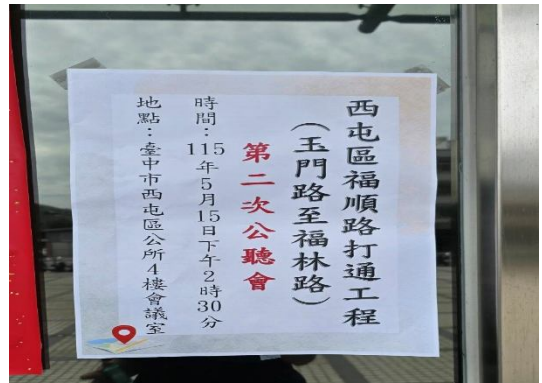 西屯區福順路打通工程
（玉門路至福林路）
第二次公聽會
時間：115年5月15日下午2時30分
地點：臺中市西屯區公所4樓會議室